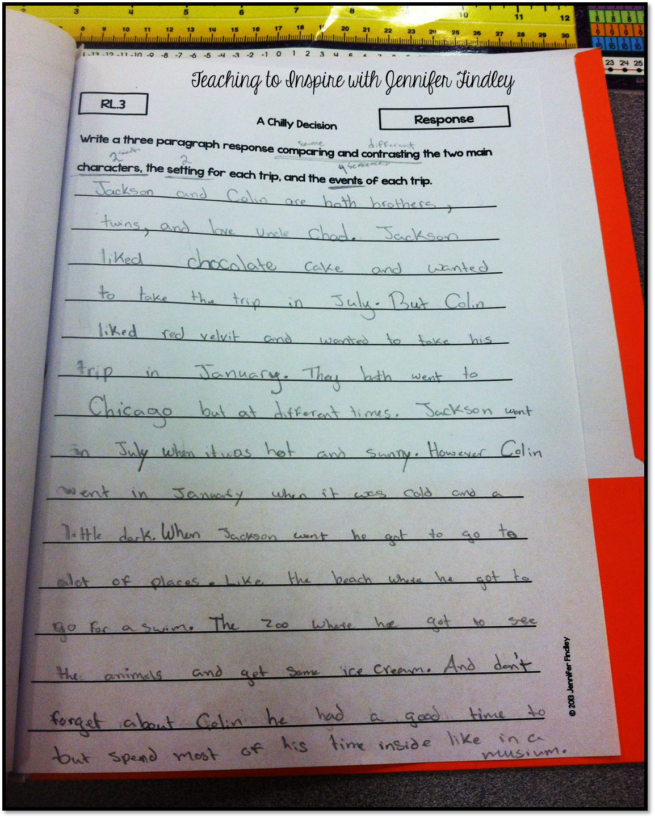 Teaching to Inspire with Jennifer Findley
RL.3
A Chilly Decision
Response
same different
Write a three paragraph response comparing and contrasting the two main
2 2 4 sentences
characters, the setting for each trip, and the events of each trip.
Jackson and Colin are both brothers,
twins, and love Uncle Chad. Jackson
liked chocolate cake and wanted
to take the trip in July. But Colin
liked red velvit and wanted to take his
trip in January. They both went to
Chicago but at different times. Jackson went
in July when it was hot and sunny. However Colin
went in January when it was cold and a
little dark. When Jackson went he got to go to
alot of places. Like the beach where he got to
go for a swim. The zoo where he got to see
the animals and got some ice cream. And don't
forget about Colin he had a good time to
but spend most of his time inside like in a
musium.
© 2013 Jennifer Findley